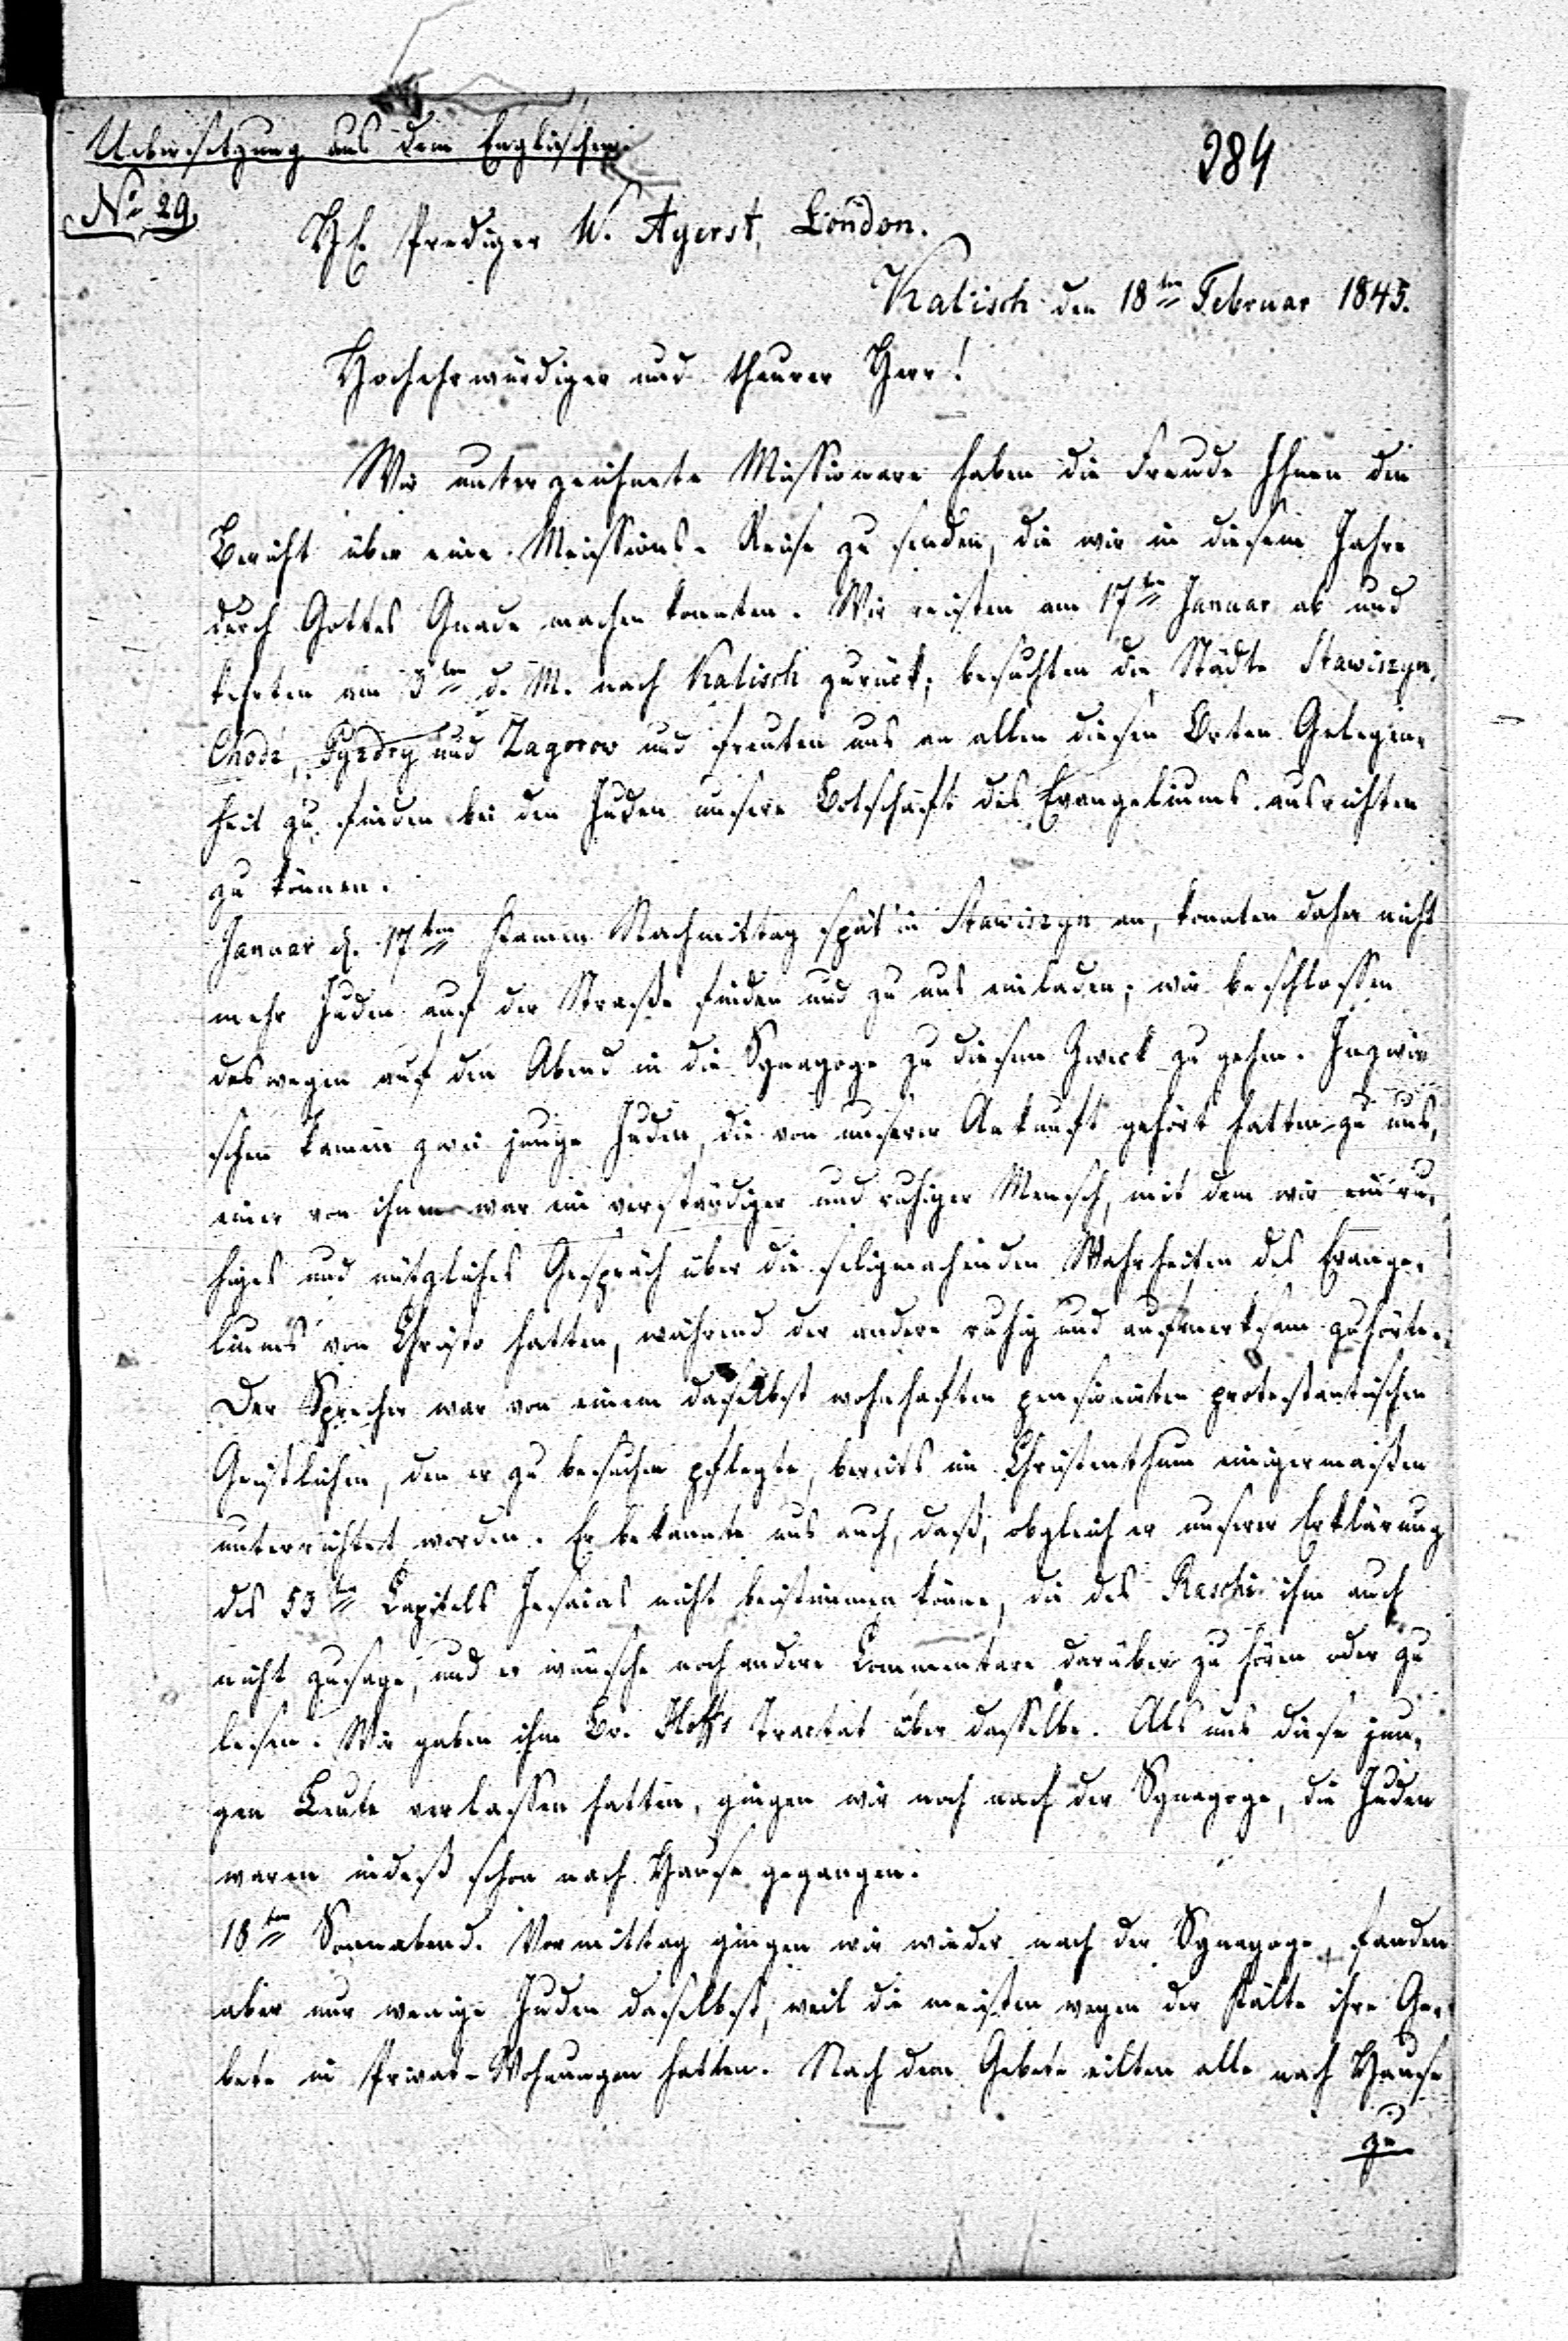 Uebersetzung aus dem Englischen.
284
No 29.
H. Prediger W. Ayerst, London.
Kalisch den 18ten Februar 1845.
Hochehrwürdiger und theurer Herr!
Wir unterzeichnete Missionare haben die Freude Ihnen den
Bericht über eine Missions-Reise zu senden, die wir in diesem Jahre
durch Gottes Gnade machen konnten. Wir reisten am 17ten Januar ab und
kehrten am 3ten d. M. nach Kalisch zurück; besuchten die Städte Stawiszyn,
Chodz, Pyzdry und Zagorow und freuten uns an allen diesen Orten Gelegen-
heit zu finden bei den Juden unsere Botschaft des Evangeliums ausrichten
zu können.
Januar d. 17ten kamen Nachmittag spät in Stawiszyn an, konnten daher nicht
mehr Juden auf der Straße finden und zu uns einladen; wir beschlossen
deswegen auf den Abend in die Synagoge zu diesem Zweck zu gehen. Inzwi-
schen kamen zwei junge Juden, die von unserer Ankunft gehört hatten zu uns,
einer von ihnen war ein verständiger und ruhiger Mensch, mit dem wir ein ru-
higes und nützliches Gespräch über die seligmachenden Wahrheiten des Evange-
liums von Christo hatten, während der andere ruhig und aufmerksam zuhörte.
Der Sprecher war von einem daselbst wohnhaften pensionirten protestantischen
Geistlichen, den er zu besuchen pflegte, bereits im Christenthum einigermaßen
unterrichtet worden. Er bekannte uns auch, daß, obgleich er unserer Erklärung
des 53ten Capitels Jesaias nicht beistimmen könne, die des Raschi ihm auch
nicht zusage, und er wünsche noch andere Commentare darüber zu hören oder zu
lesen. Wir gaben ihm Br. Hoffs Tractat über dasselbe. Als uns diese jun-
gen Leute verlassen hatten, gingen wir noch nach der Synagoge, die Juden
waren indeß schon nach Hause gegangen.
18ten Sonnabend. Vormittag gingen wir wieder nach der Synagoge, fanden
aber nur wenige Juden daselbst, weil die meisten wegen der Kälte ihre Ge-
bete in Privat-Wohnungen hatten. Nach dem Gebete eilten alle nach Hause
zu